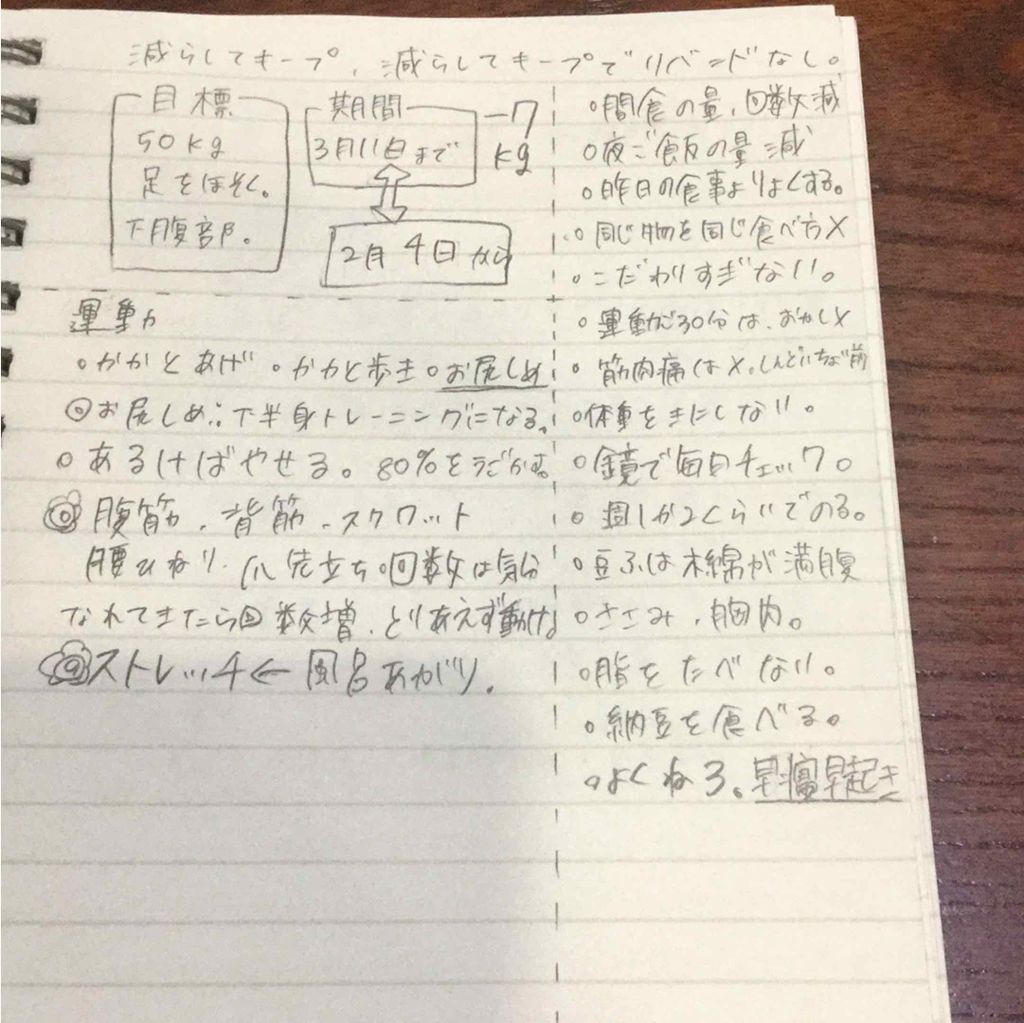 減らしてキープ、減らしてキープでリバンドなし。
目標
50kg
足をほそく。
下腹部。
期間
3月11日まで
-7
kg
2月4日から
運動
○かかとあげ ○かかと歩き ○お尻しめ
◎お尻しめ∴下半身トレーニングになる。
○あるけばやせる。80%をうごかす。
◎腹筋、背筋、スクワット
腰ひねり、爪先立ち。回数は気分
なれてきたら回数増、とりあえず動け
◎ストレッチ←風呂あがり。
○間食の量、回数減
○夜ご飯の量減
○昨日の食事よりよくする。
○同じ物を同じ食べ方×
○こだわりすぎない。
○運動が30分は、おかし×
○筋肉痛は×。しんどいちょい前
○体重をきにしない。
○鏡で毎日チェック。
○週1か2くらいでのる。
○豆ふは木綿が満腹
○ささみ、胸肉。
○脂をたべない。
○納豆を食べる。
○よくねる。早寝早起き